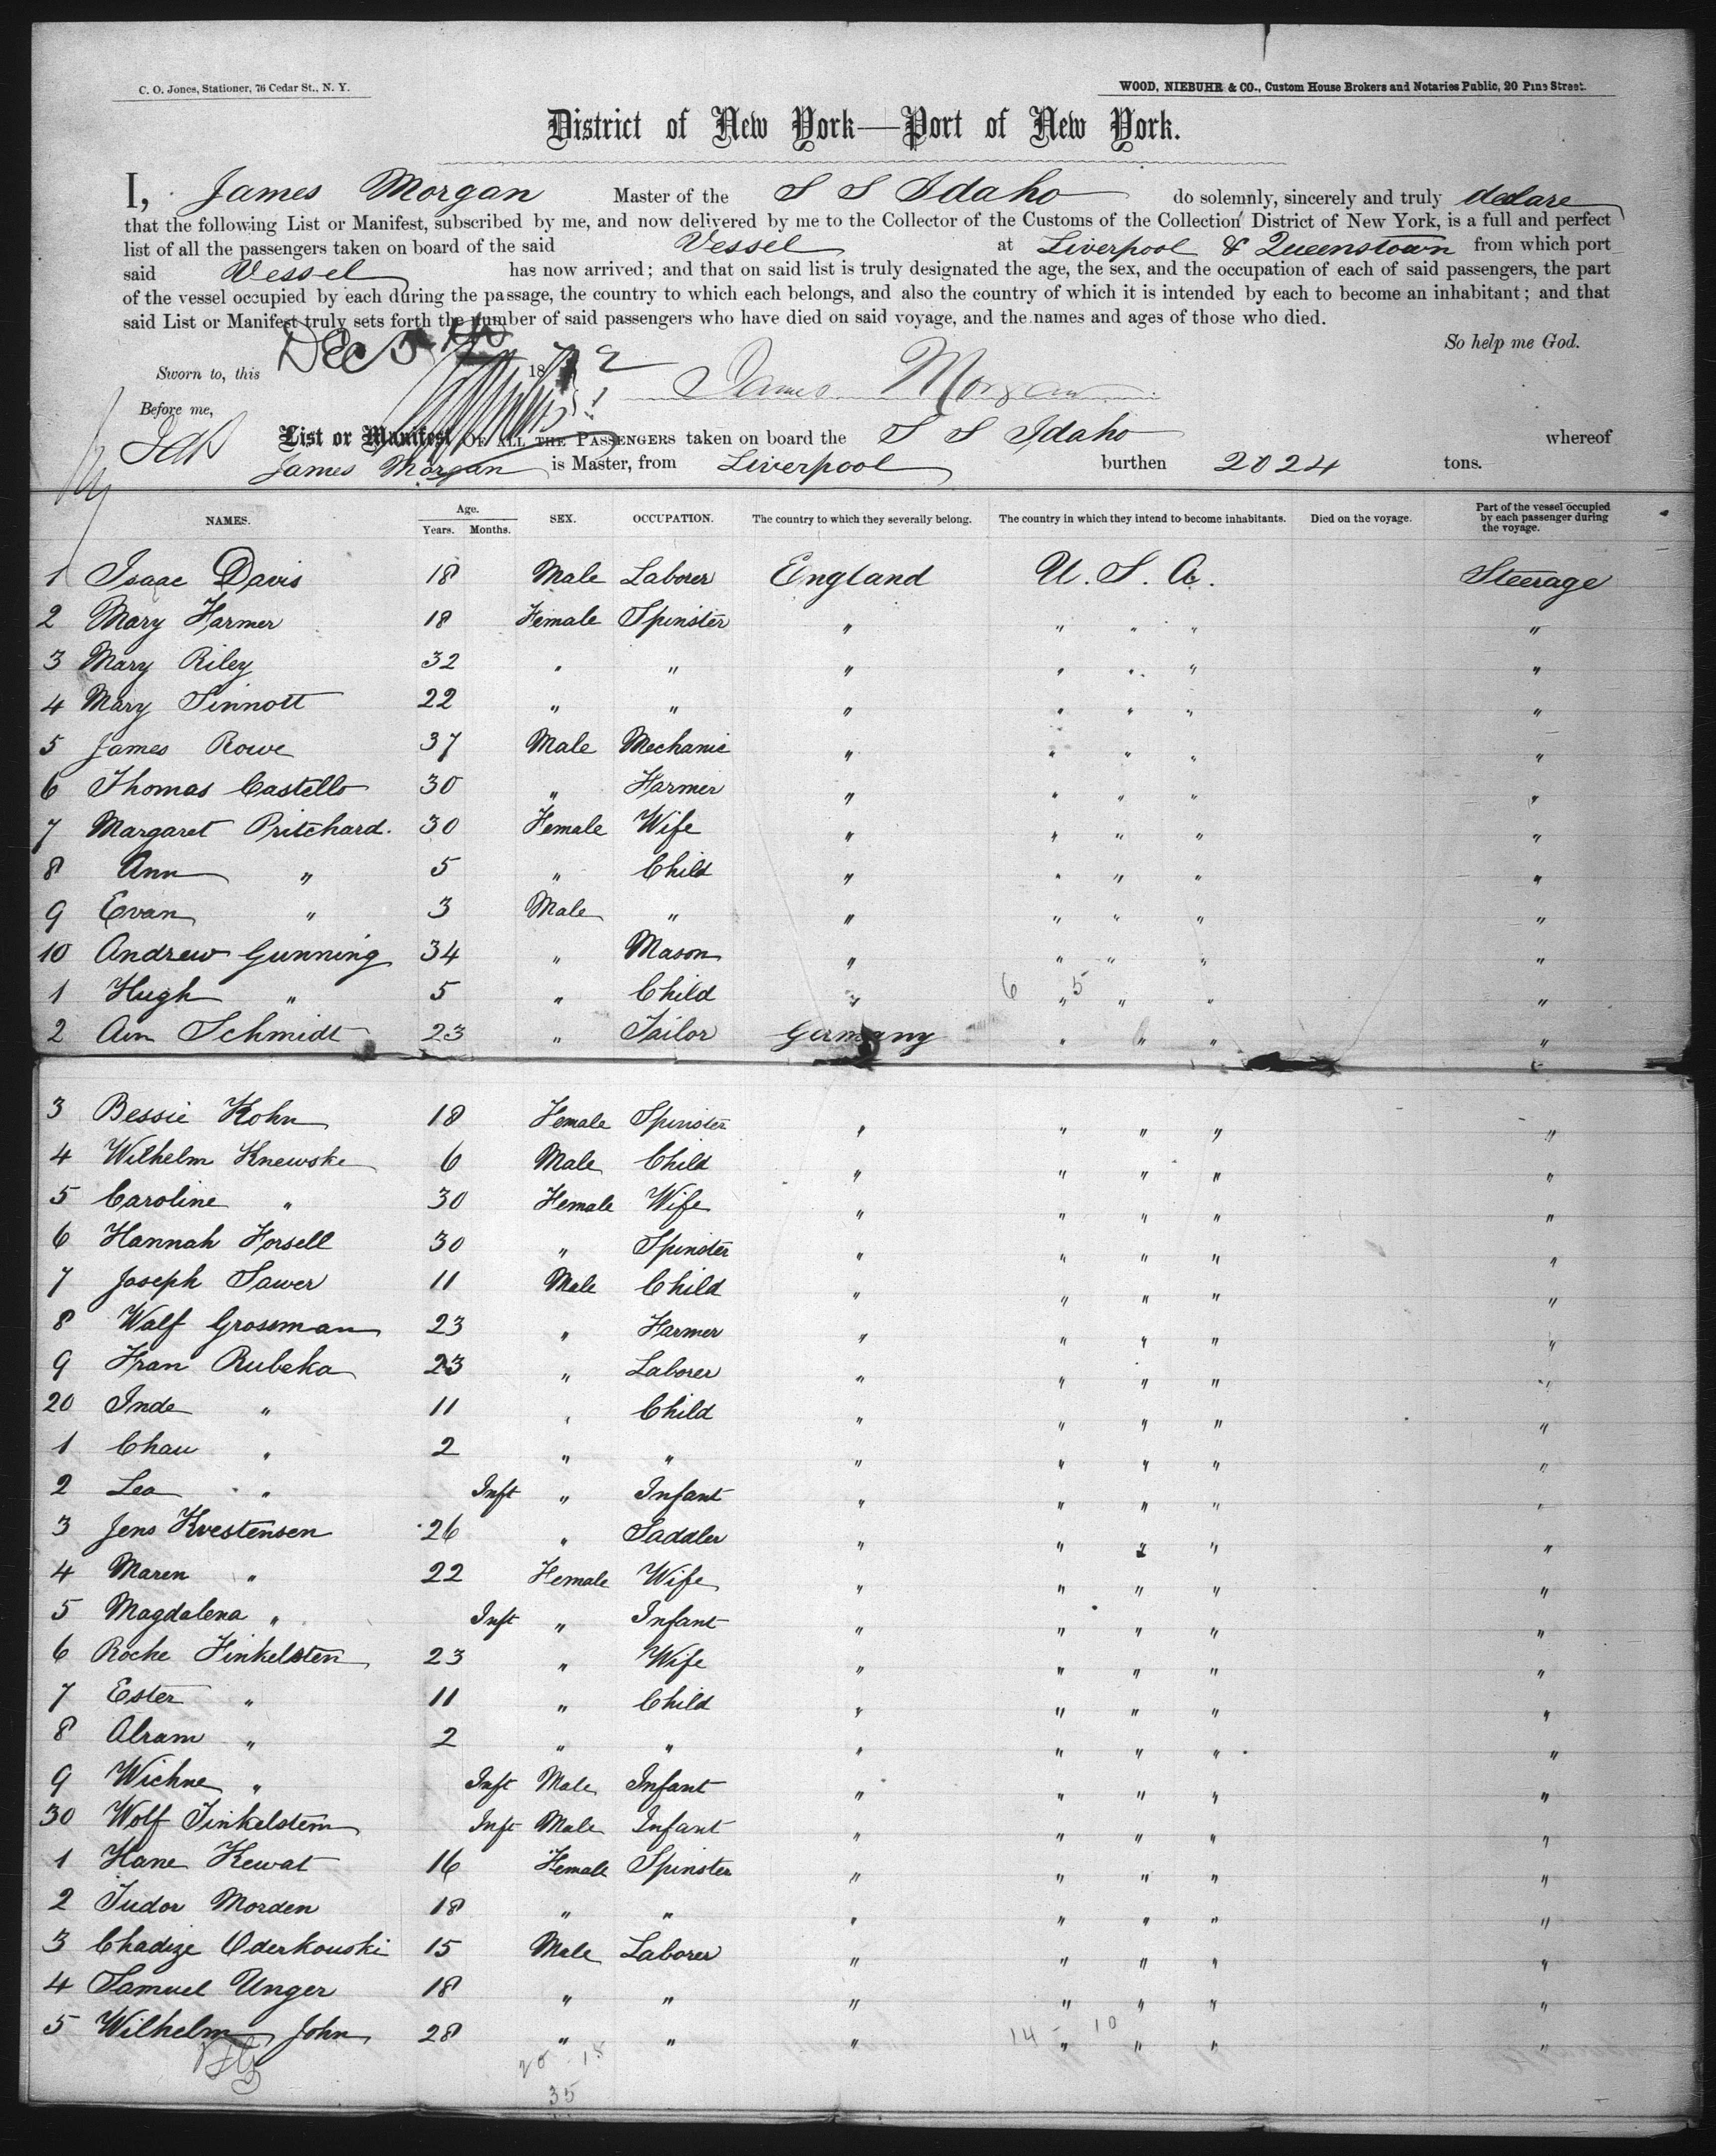 C. O. Jones, Stationer, 76 Cedar St., N. Y.
WOOD, NIEBUHR & CO., Custom House Brokers and Notaries Public, 20 Pine Street.
District of New York—Port of New York.
I, James Morgan Master of the S S Idaho do solemnly, sincerely and truly declare
that the following List or Manifest, subscribed by me, and now delivered by me to the Collector of the Customs of the Collection District of New York, is a full and perfect
list of all the passengers taken on board of the said Vessel at Liverpool & Queenstown from which port
said Vessel has now arrived; and that on said list is truly designated the age, the sex, and the occupation of each of said passengers, the part
of the vessel occupied by each during the passage, the country to which each belongs, and also the country of which it is intended by each to become an inhabitant; and that
said List or Manifest truly sets forth the number of said passengers who have died on said voyage, and the names and ages of those who died.
So help me God.
Sworn to, this Dec 5th 1872 James Morgan
Before me,
List or Manifest OF ALL THE PASSENGERS taken on board the S S Idaho whereof
James Morgan is Master, from Liverpool burthen 2024 tons.
NAMES. Age. Years. Months. SEX. OCCUPATION. The country to which they severally belong. The country in which they intend to become inhabitants. Died on the voyage. Part of the vessel occupied by each passenger during the voyage.
1 Isaac Davis 18 Male Laborer England U. S. A. Steerage
2 Mary Farmer 18 Female Spinster " " " " "
3 Mary Riley 32 " " " " " " "
4 Mary Sinnott 22 " " " " " " "
5 James Rowe 37 Male Mechanic " " " " "
6 Thomas Costello 30 " Farmer " " " " "
7 Margaret Pritchard. 30 Female Wife " " " " "
8 Ann " 5 " Child " " " " "
9 Evan " 3 Male " " " " " "
10 Andrew Gunning 34 " Mason " " " " "
1 Hugh " 5 " Child " 6 " 5 " " "
2 Schmidt 23 " Tailor Germany " " " "
3 Bessie Kohn 18 Female Spinster " " " " "
4 Wilhelm Knewske 6 Male Child " " " " "
5 Caroline " 30 Female Wife " " " " "
6 Hannah Forsell 30 " Spinster " " " " "
7 Joseph Sawer 11 Male Child " " " " "
8 Walf Grossman 23 " Farmer " " " " "
9 Fran Rubeka 23 " Laborer " " " " "
20 Inde " 11 " Child " " " " "
1 Chau " 2 " " " " " " "
2 Lea " Inft " Infant " " " " "
3 Jens Krestensen 26 " Saddler " " " " "
4 Maren " 22 Female Wife " " " " "
5 Magdalena " Inft " Infant " " " " "
6 Roche Finkelstein 23 " Wife " " " " "
7 Ester " 11 " Child " " " " "
8 Abram " 2 " " " " " " "
9 Wichne " Inft Male Infant " " " " "
30 Wolf Finkelstein Inft Male Infant " " " " "
1 Hane Kewat 16 Female Spinster " " " " "
2 Tudor Morden 18 " " " " " " "
3 Chadize Oderkouski 15 Male Laborer " " " " "
4 Samuel Unger 18 " " " " " " "
5 Wilhelm John 28 " " " 14 " 10 " " "
20 15
35